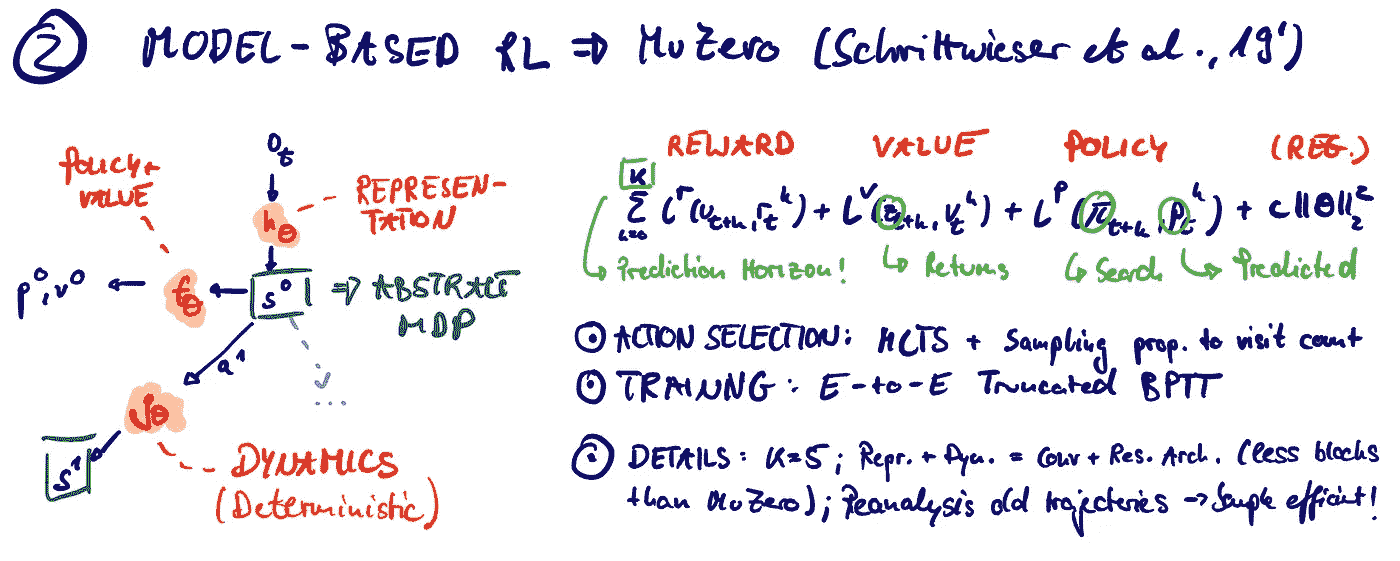 ② MODEL-BASED RL ⇒ MuZero (Schrittwieser et al., 19')
O_t
POLICY + VALUE
h_θ
REPRESEN-
TATION
p⁰, v⁰ ← f_θ ← s⁰ ⇒ ABSTRACT
MDP
a¹
...
g_θ
s¹
DYNAMICS
(Deterministic)
REWARD VALUE POLICY (REG.)
K
Σ l^r(u_{t+k}, r_t^k) + l^v(z_{t+k}, v_t^k) + l^p(π_{t+k}, p_t^k) + c||θ||₂²
k=0
Prediction Horizon! Returns Search Predicted
ACTION SELECTION: MCTS + Sampling prop. to visit count
TRAINNG: E-to-E Truncated BPTT
DETAILS: K=5; Repr. + Dyn. = Conv + Res. Arch. (less blocks
than MuZero); Reanalysis old trajectories → Sample efficient!